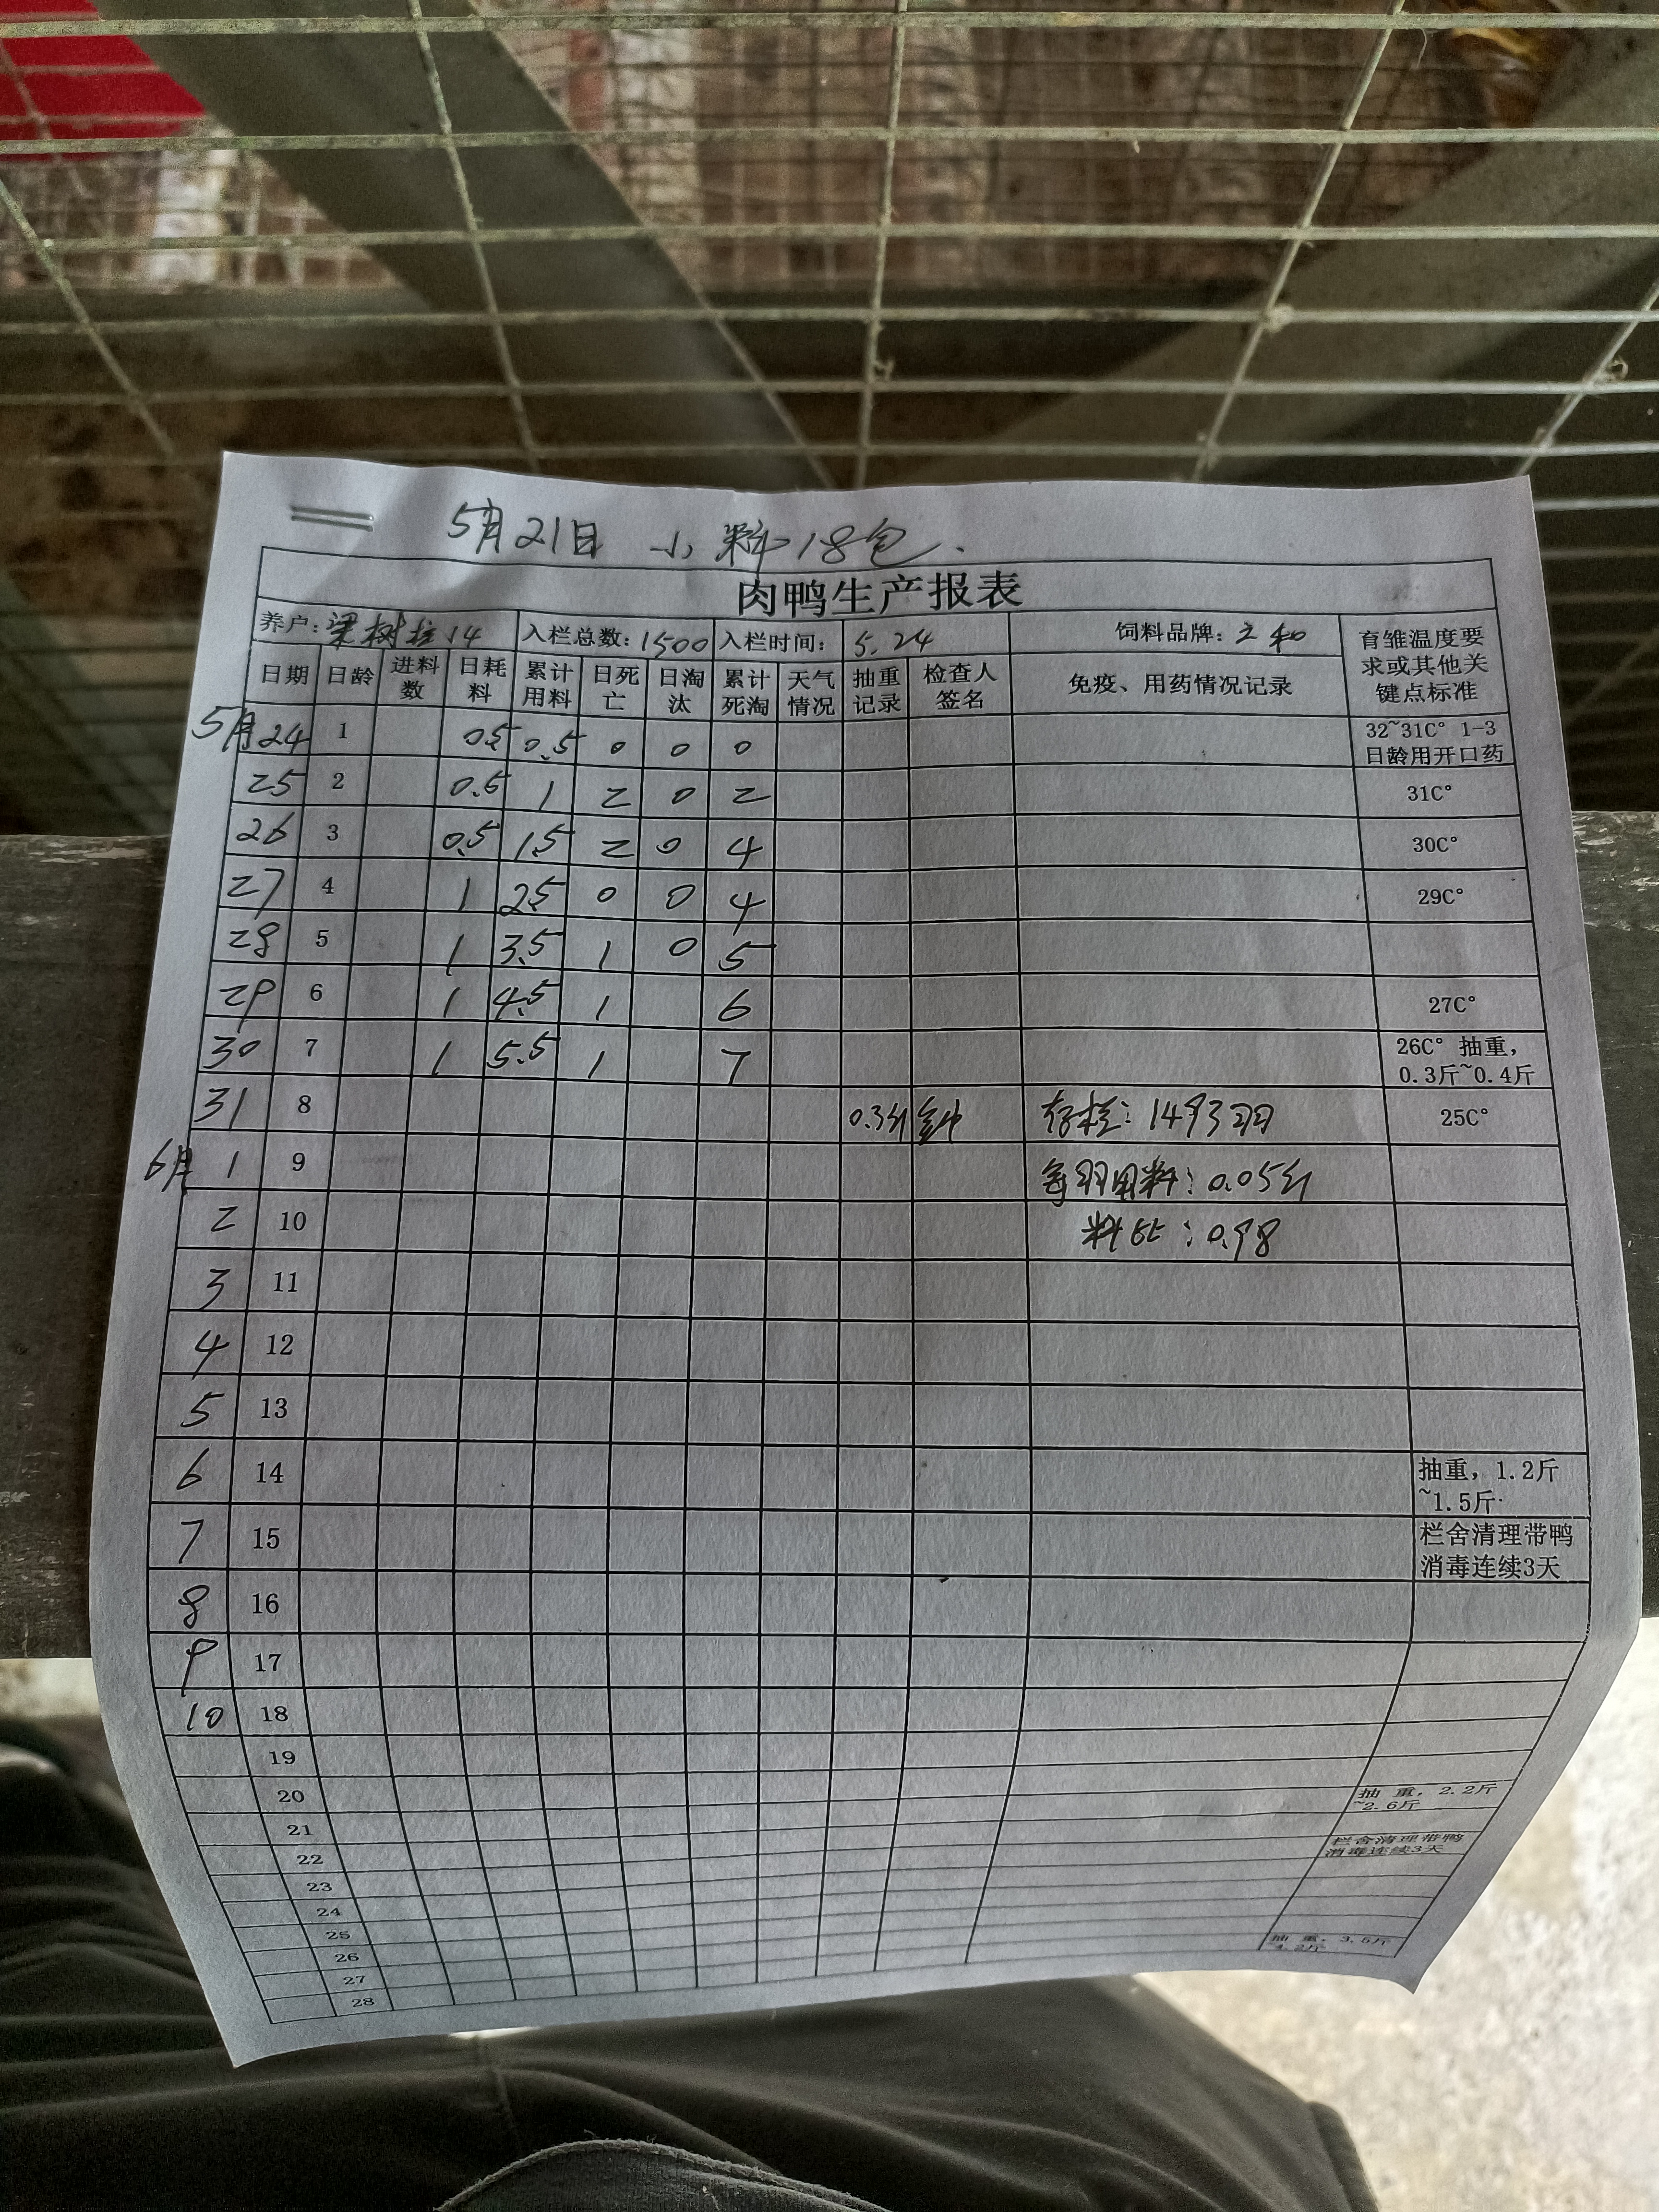 5月21日 小料18包.
肉鸭生产报表
养户: 梁树 14 入栏总数: 1500 入栏时间: 5.24 饲料品牌: 立和 育雏温度要求或其他关键点标准
日期 日龄 进料数 日耗料 累计用料 日死亡 日淘汰 累计死淘 天气情况 抽重记录 检查人签名 免疫、用药情况记录
5月24 1 0.5 0.5 0 0 0 32~31C° 1-3日龄用开口药
25 2 0.5 1 2 0 2 31C°
26 3 0.5 1.5 2 0 4 30C°
27 4 1 2.5 0 0 4 29C°
28 5 1 3.5 1 0 5
29 6 1 4.5 1 6 27C°
30 7 1 5.5 1 7 26C° 抽重, 0.3斤~0.4斤
31 8 0.3斤 存栏: 1493羽 25C°
6月 1 9 每羽用料: 0.05斤
2 10 料比: 0.98
3 11
4 12
5 13
6 14 抽重, 1.2斤~1.5斤
7 15 栏舍清理带鸭消毒连续3天
8 16
9 17
10 18
19
20 抽 重, 2.2斤~2.6斤
21
22 栏舍清理带鸭消毒连续3天
23
24
25
26 抽 重, 3.5斤
27
28